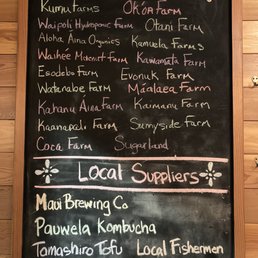 Kumu Farms Ok'OA Farm
Waipoli Hydroponic Farm Otani Farm
Aloha Aina Organics Kamuela Farms
Waihee Macnut Farm Kawamata Farm
Escobedo Farm Evonuk Farm
Watanabe Farm Má'alaea Farm
Kahanu Aina Farm Kaimanu Farm
Kaanapali Farm Sunnyside Farm
Coca Farm Sugarland
Local Suppliers
Maui Brewing Co
Pauwela Kombucha
Tamashiro Tofu Local Fishermen